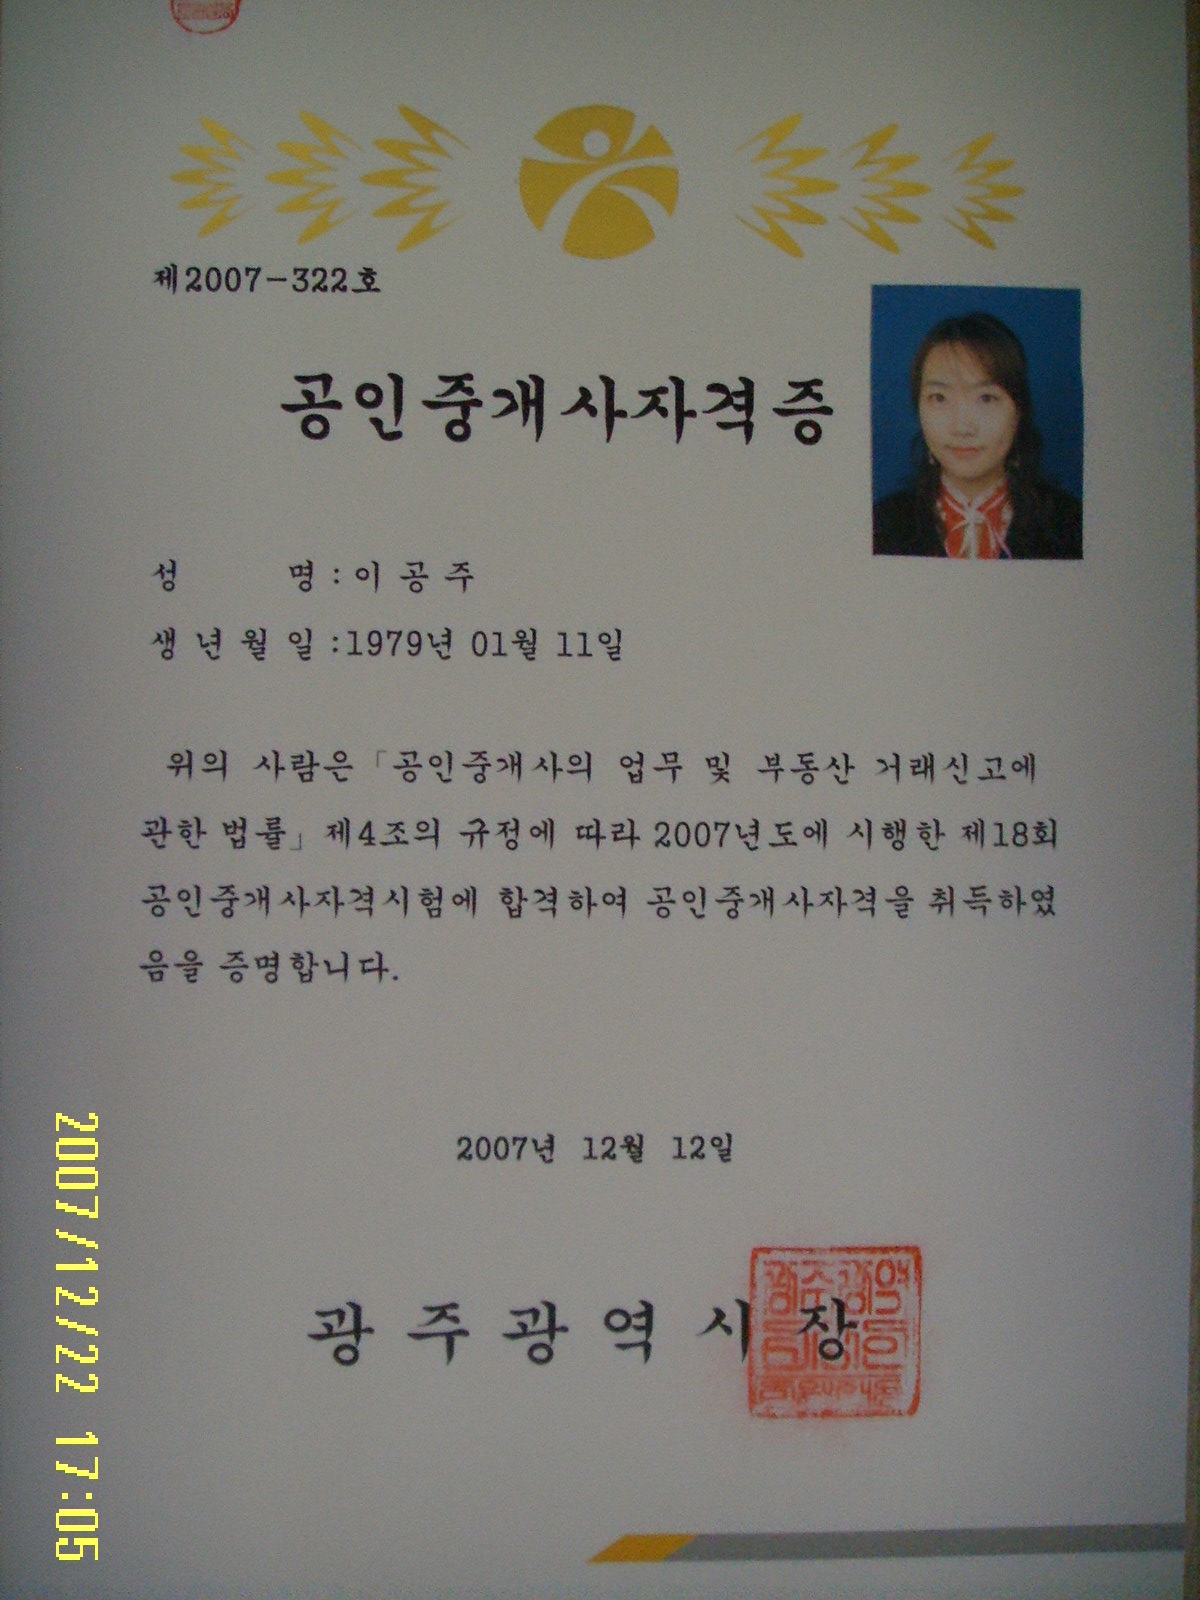 제2007-322호
공인중개사자격증
성 명 : 이 공 주
생 년 월 일 :1979년 01월 11일
위의 사람은 「공인중개사의 업무 및 부동산 거래신고에
관한 법률」 제4조의 규정에 따라 2007년도에 시행한 제18회
공인중개사자격시험에 합격하여 공인중개사자격을 취득하였
음을 증명합니다.
2007년 12월 12일
광 주 광 역 시 장
2007/12/22 17:05